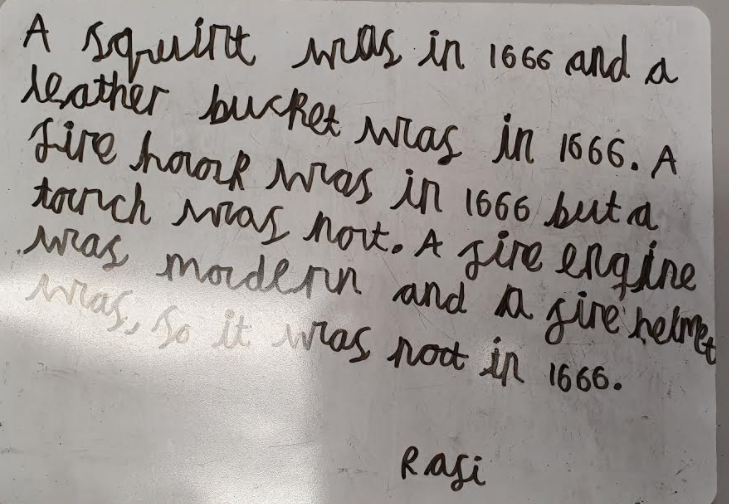 A squirt was in 1666 and a
leather bucket was in 1666. A
fire hook was in 1666 but a
torch was not. A fire engine
was modern and a fire helmet
was, so it was not in 1666.
Rafi